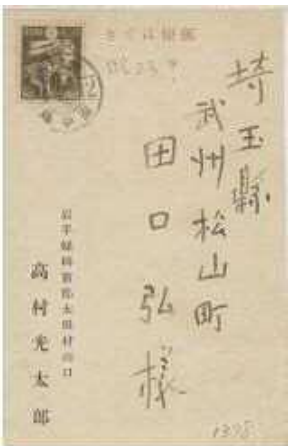 郵便はがき
埼玉縣
武州松山町
田口弘様
岩手縣稗貫郡太田村山口
高村光太郎
1398